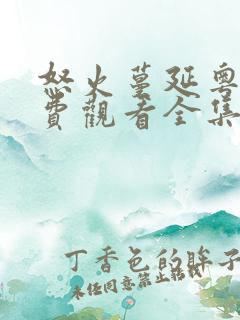 怒火蔓延粤
費觀看全集
丁香色的眸子
未经同意禁止转载